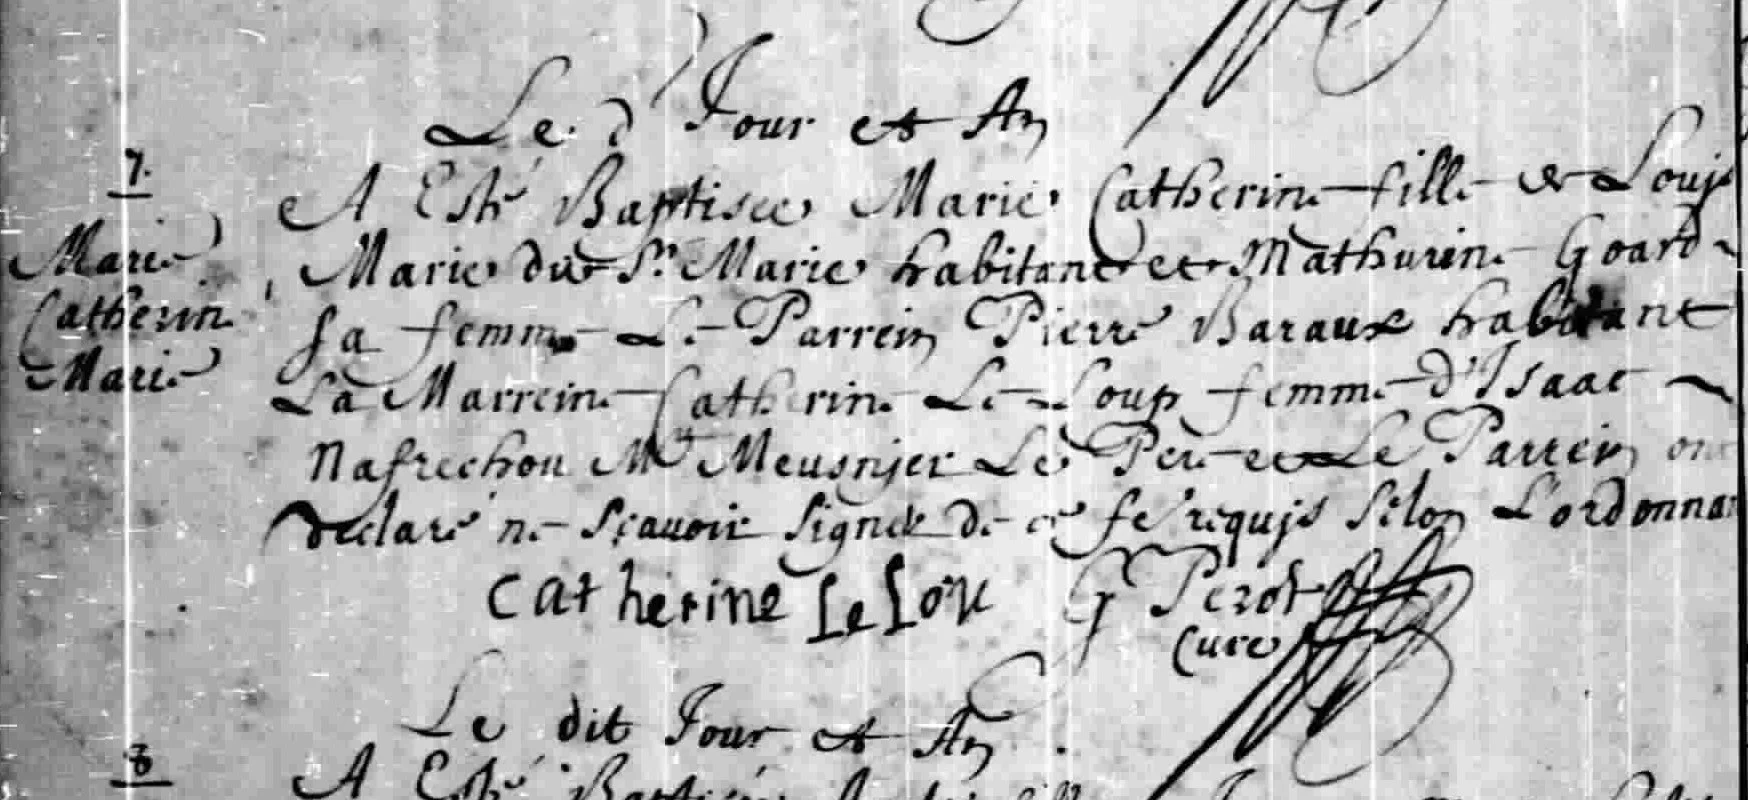 Le d Jour et An
7.
A Esté Baptisee Marie Catherine fille de Louis
Marie
Marie dit Ste Marie habitant et Mathurine Goard
Catherin
sa femme Le Parrein Pierre Baraux habitant
Marie
La Marreine Catherine Le Loup femme d'Isaac
Nafrechou Md Meusnier Le Pere et Le Parrein ont
declaré ne sçavoir signer de ce requis selon L'ordonnan
catherine Le Lou G Perot
Curé
Le dit Jour et An
8
A Esté